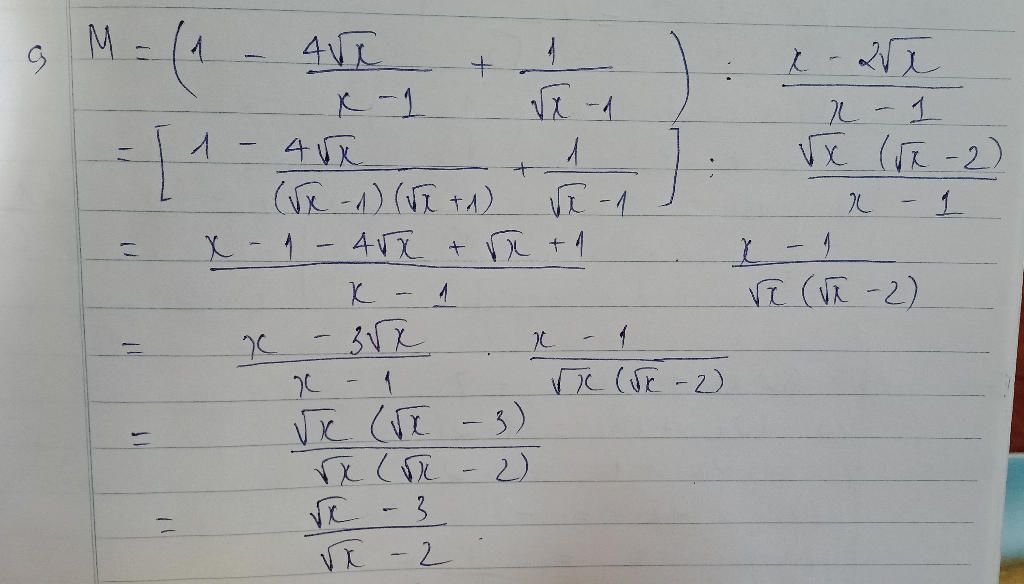 9 M = (1 - 4√x / x - 1 + 1 / √x - 1) : x - 2√x / x - 1
= [1 - 4√x / (√x - 1)(√x + 1) + 1 / √x - 1] : √x (√x - 2) / x - 1
= x - 1 - 4√x + √x + 1 / x - 1 . x - 1 / √x (√x - 2)
= x - 3√x / x - 1 . x - 1 / √x (√x - 2)
= √x (√x - 3) / √x (√x - 2)
= √x - 3 / √x - 2 .